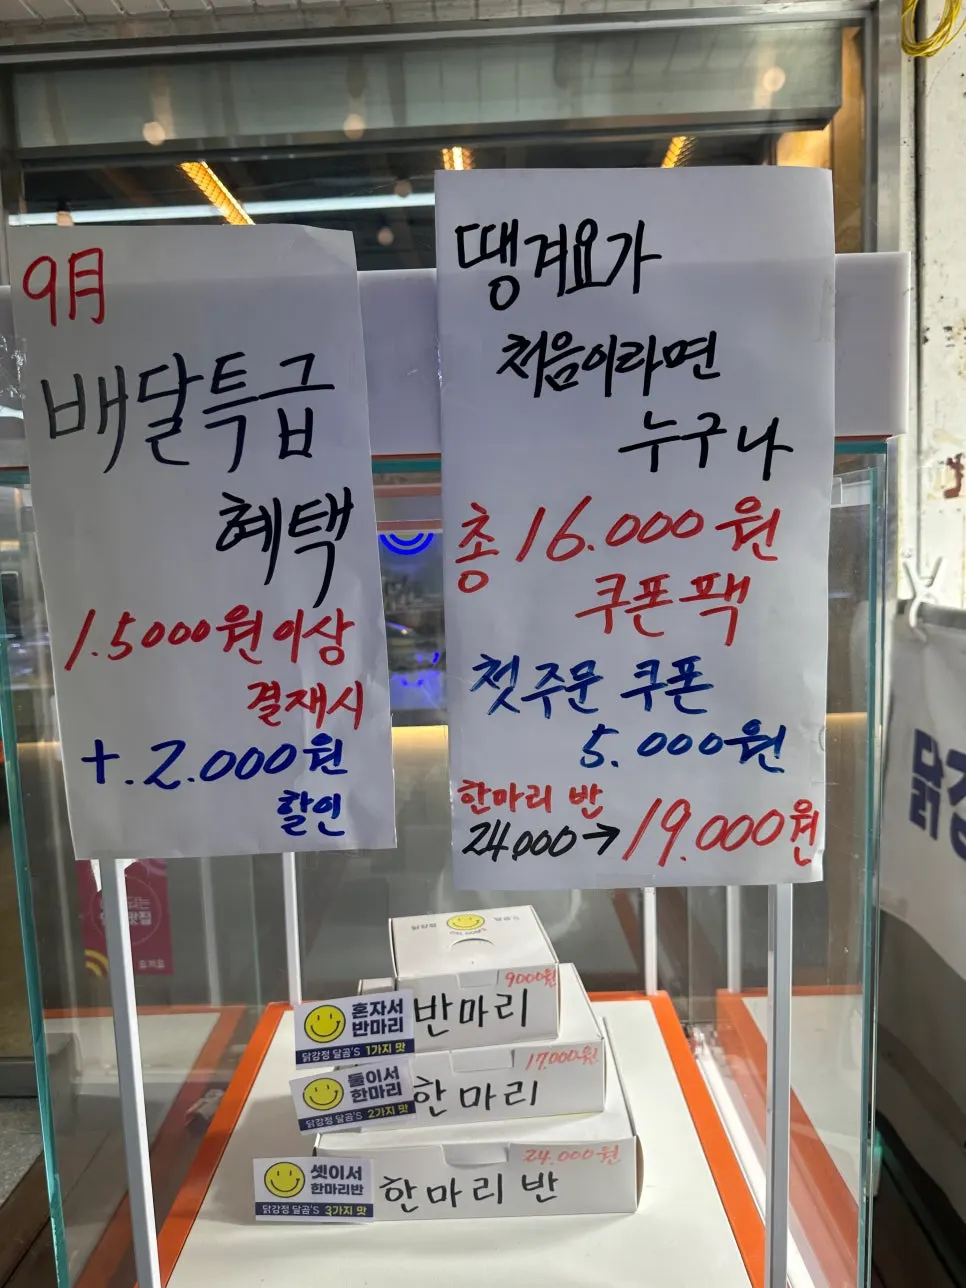 9月
배달특급
혜택
1.5000원이상
결재시
+.2.000원
할인
땡겨요가
처음이라면
누구나
총 16.000원
쿠폰팩
첫주문 쿠폰
5.000원
한마리 반
24,000→19.000원
9000원
반마리
혼자서
반마리
닭강정 달곰'S 1가지 맛
17,000원
한마리
둘이서
한마리
닭강정 달곰'S 2가지 맛
24.000원
한마리 반
셋이서
한마리반
닭강정 달곰'S 3가지 맛